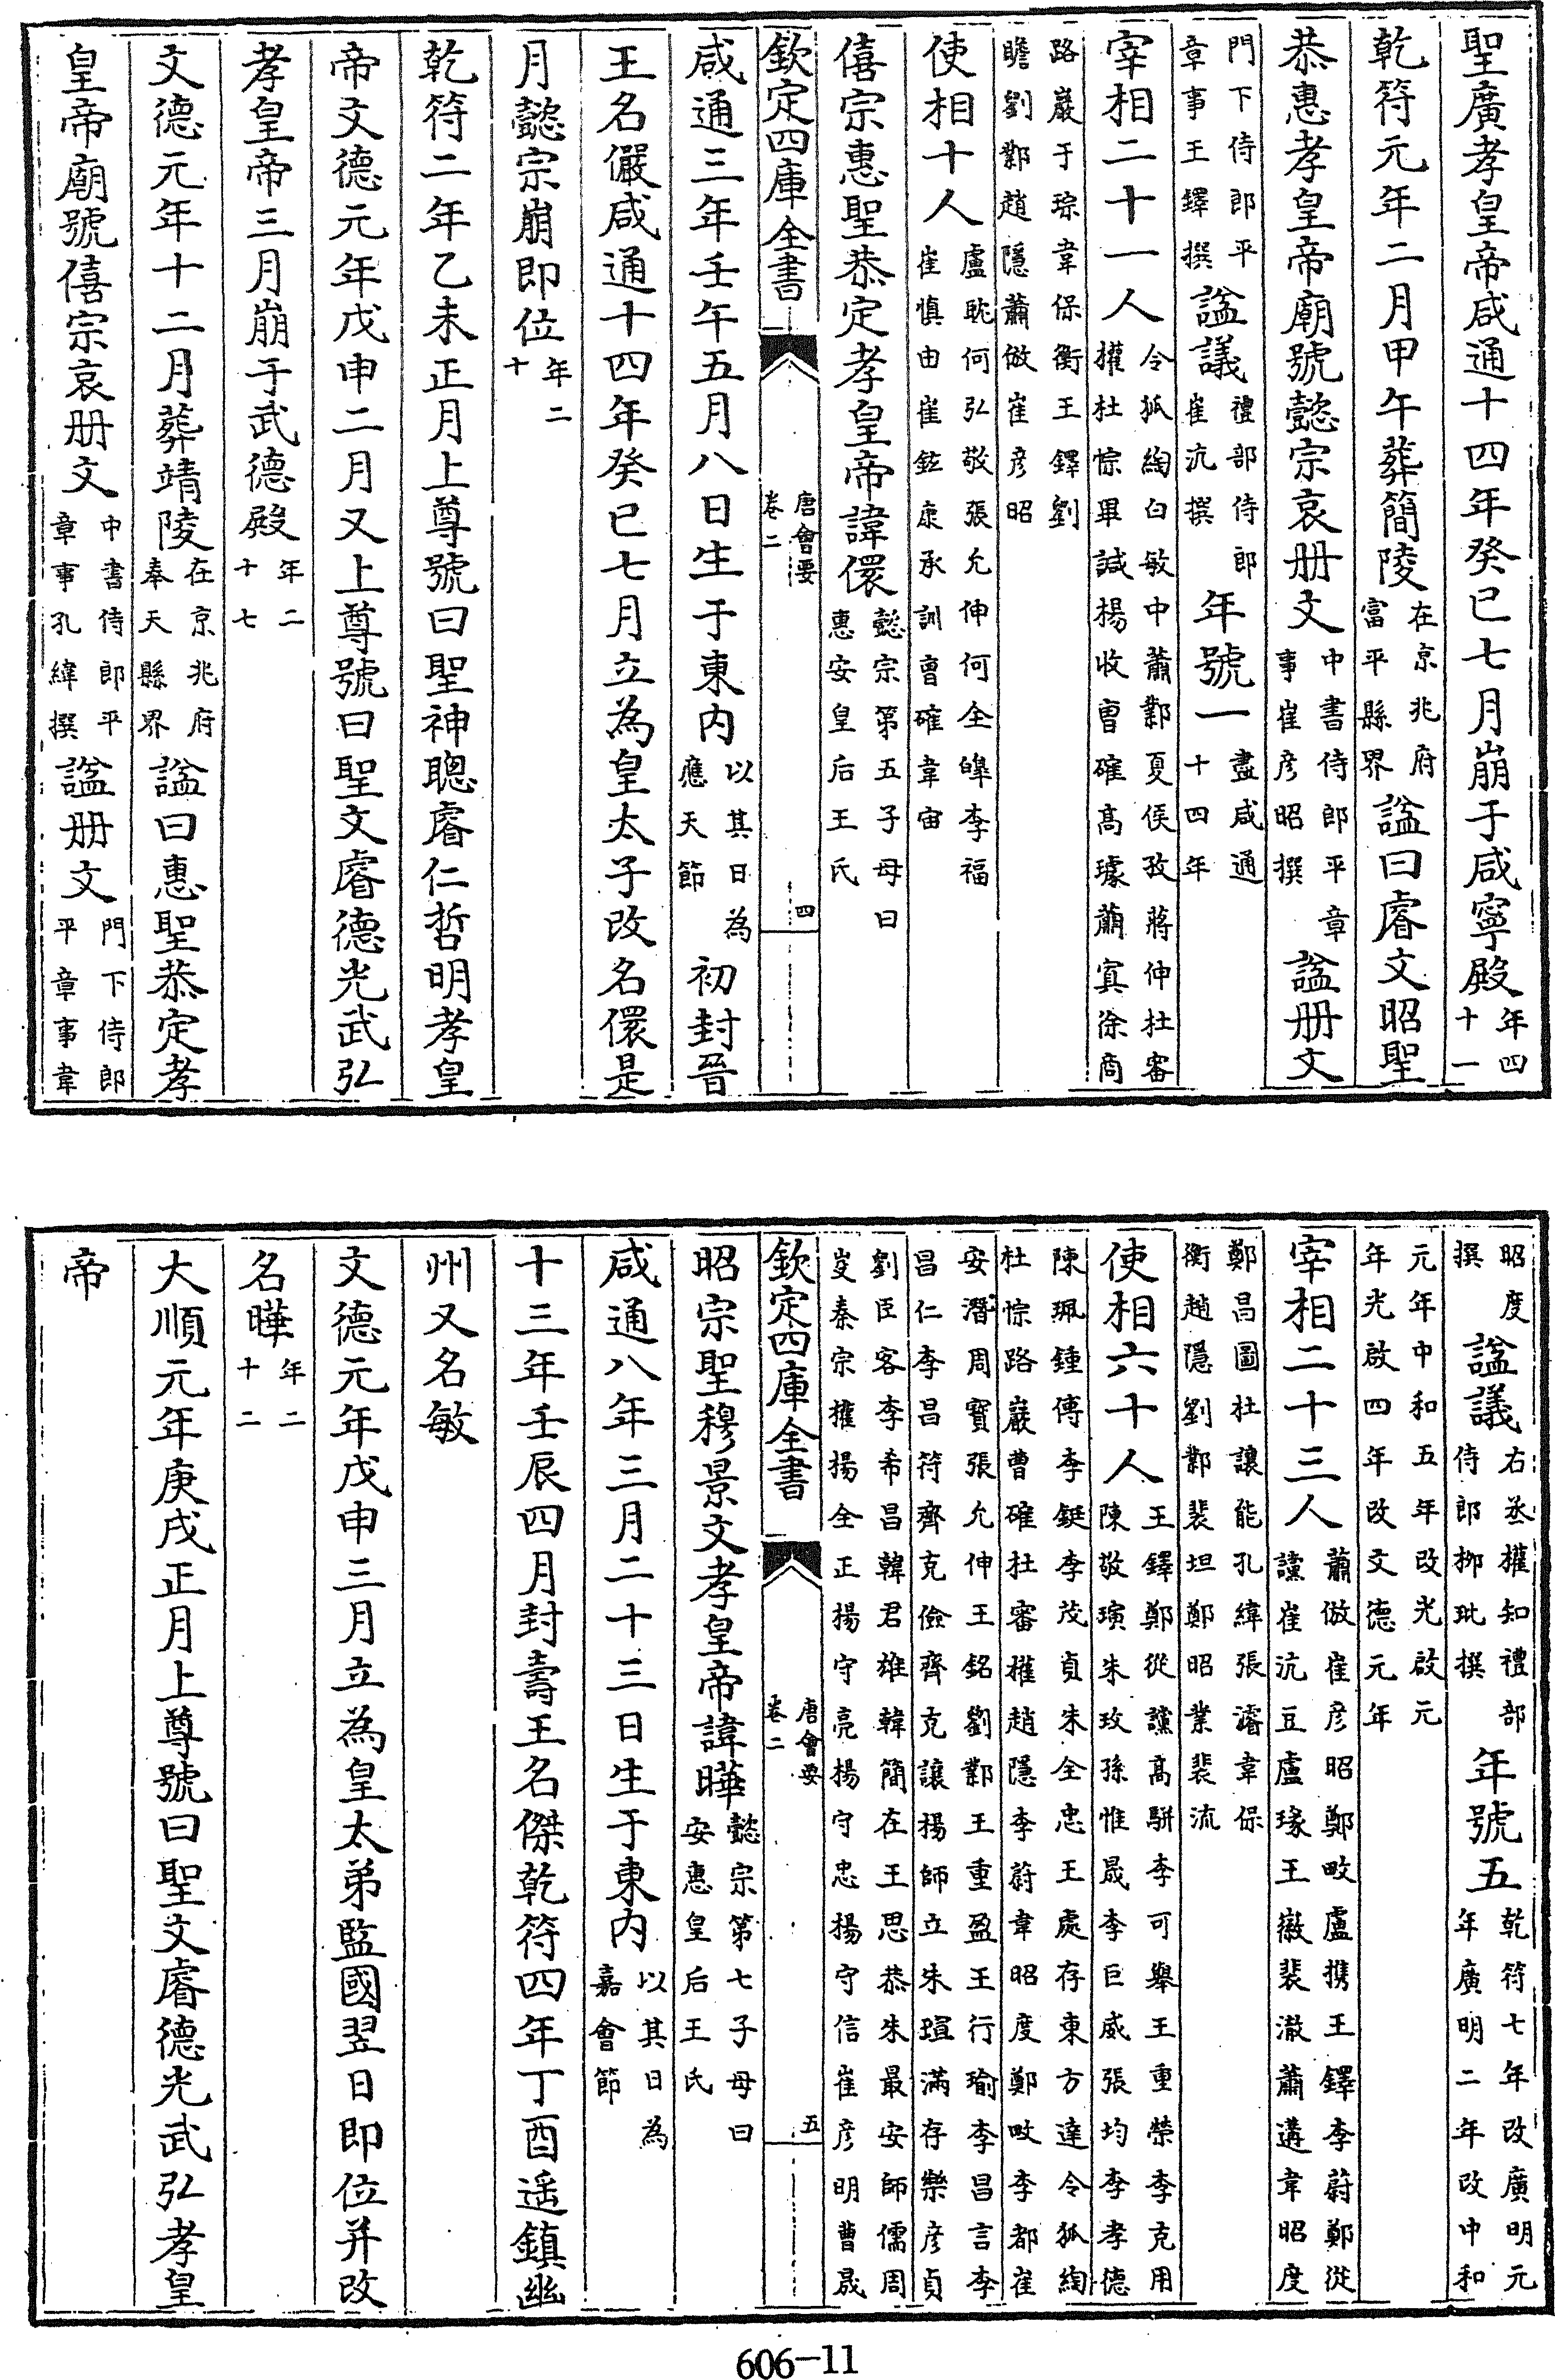 聖廣孝皇帝咸通十四年癸巳七月崩于咸寧殿年四十一
乾符元年二月甲午葬簡陵在京兆府富平縣界諡曰睿文昭聖
恭惠孝皇帝廟號懿宗哀册文中書侍郎平章事崔彦昭撰諡册文
門下侍郎平章事王鐸撰諡議禮部侍郎崔沆撰年號一盡咸通十四年
宰相二十一人令狐綯白敏中蕭鄴夏侯孜蔣伸杜審權杜悰畢諴楊收曹確高璩蕭寘徐商
路巖于琮韋保衡王鐸劉瞻劉鄴趙隱蕭倣崔彦昭
使相十人盧耽何弘敬張允伸何全皥李福崔慎由崔鉉康承訓曹確韋宙
僖宗惠聖恭定孝皇帝諱儇懿宗第五子母曰惠安皇后王氏
欽定四庫全書 唐會要 卷二 四
咸通三年壬午五月八日生于東内以其日為應天節初封晉
王名儼咸通十四年癸巳七月立為皇太子改名儇是
月懿宗崩即位年二十
乾符二年乙未正月上尊號曰聖神聰睿仁哲明孝皇
帝文德元年戊申二月又上尊號曰聖文睿德光武弘
孝皇帝三月崩于武德殿年二十七
文德元年十二月葬靖陵在京兆府奉天縣界諡曰惠聖恭定孝
皇帝廟號僖宗哀册文中書侍郎平章事孔緯撰諡册文門下侍郎平章事韋
昭度撰諡議右丞權知禮部侍郎柳玭撰年號五乾符七年改廣明元年廣明二年改中和
元年中和五年改光啟元年光啟四年改文德元年
宰相二十三人蕭倣崔彦昭鄭畋盧携王鐸李蔚鄭從讜崔沆豆盧瑑王徽裴澈蕭遘韋昭度
鄭昌圖杜讓能孔緯張濬韋保衡趙隱劉鄴裴坦鄭昭業裴流
使相六十人王鐸鄭從讜高駢李可舉王重榮李克用陳敬瑄朱玫孫惟晟李巨威張均李孝德
陳珮鍾傳李鋌李茂貞朱全忠王處存東方逵令狐綯杜悰路巖曹確杜審權趙隱李蔚韋昭度鄭畋李都崔
安潛周寶張允伸王銘劉鄴王重盈王行瑜李昌言李昌仁李昌符齊克儉齊克讓楊師立朱瑄滿存樂彦貞
劉臣容李希昌韓君雄韓簡在王思恭朱最安師儒周岌秦宗權揚全正揚守亮揚守忠揚守信崔彦明曹晟
欽定四庫全書 唐會要 卷二 五
昭宗聖穆景文孝皇帝諱曄懿宗第七子母曰安惠皇后王氏
咸通八年三月二十三日生于東内以其日為嘉會節
十三年壬辰四月封壽王名傑乾符四年丁酉遥鎮幽
州又名敏
文德元年戊申三月立為皇太弟監國翌日即位并改
名曄年二十二
大順元年庚戌正月上尊號曰聖文睿德光武弘孝皇
帝
606-11